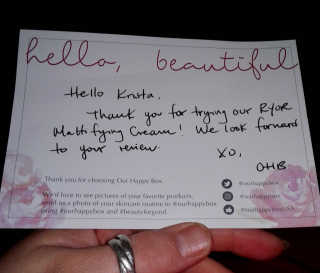 hello, beautiful
Hello Krista,
Thank you for trying our RYOR
Mattifying Cream! We look forward
to your review.
XO,
OHB
Thank you for choosing Our Happy Box.
We'd love to see pictures of your favorite products,
send us a photo of your skincare routine to #ourhappybox
using #ourhappybox and #beautybeyond.
@ourhappybox